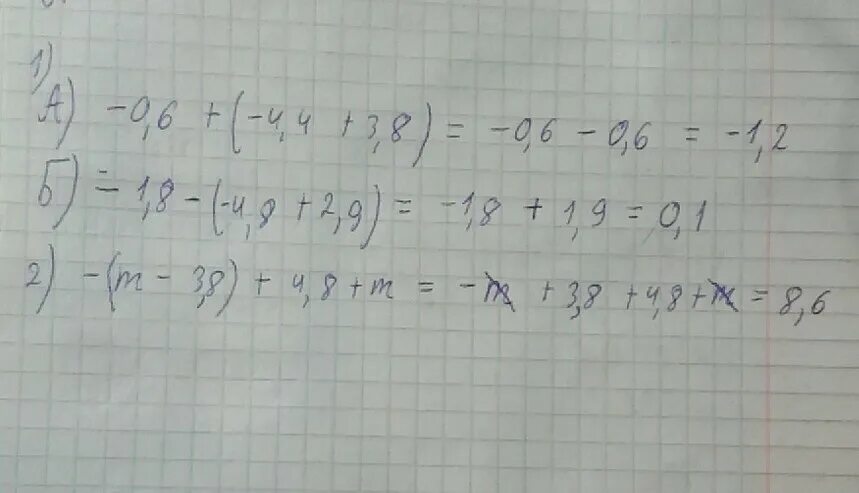 1)
А) -0,6 + (-4,4 + 3,8) = -0,6 - 0,6 = -1,2
Б) -1,8 - (-4,8 + 2,9) = -1,8 + 1,9 = 0,1
2) -(m - 3,8) + 4,8 + m = -m + 3,8 + 4,8 + m = 8,6